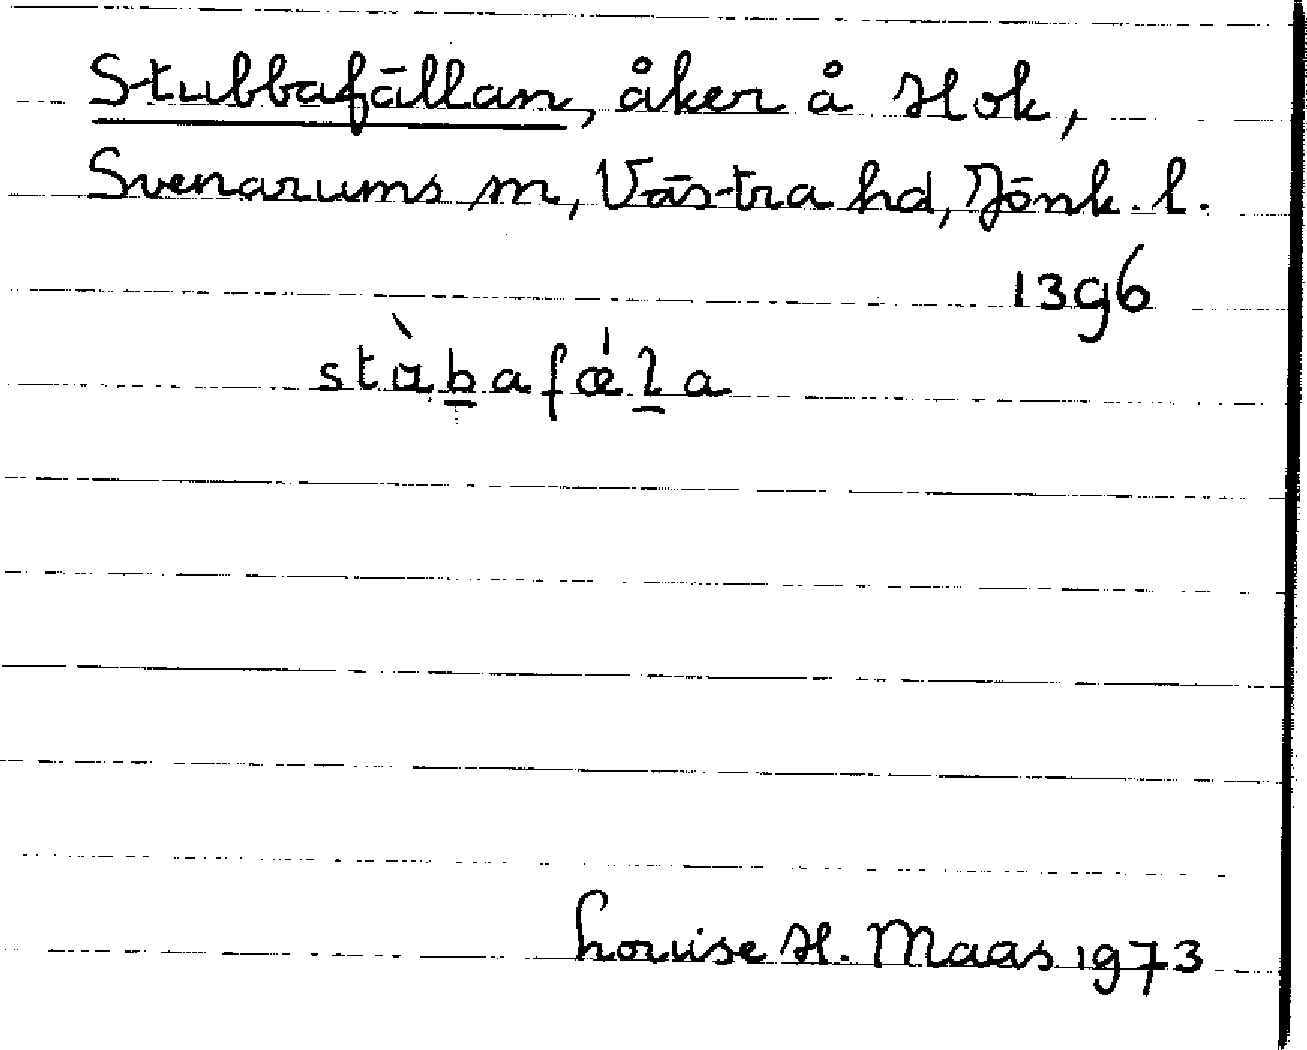 Stubbafällan, åker å Hok,
Svenarums sn, Västra hd, Jönk. l.
1396
stàbafǽla
Louise H. Maas 1973